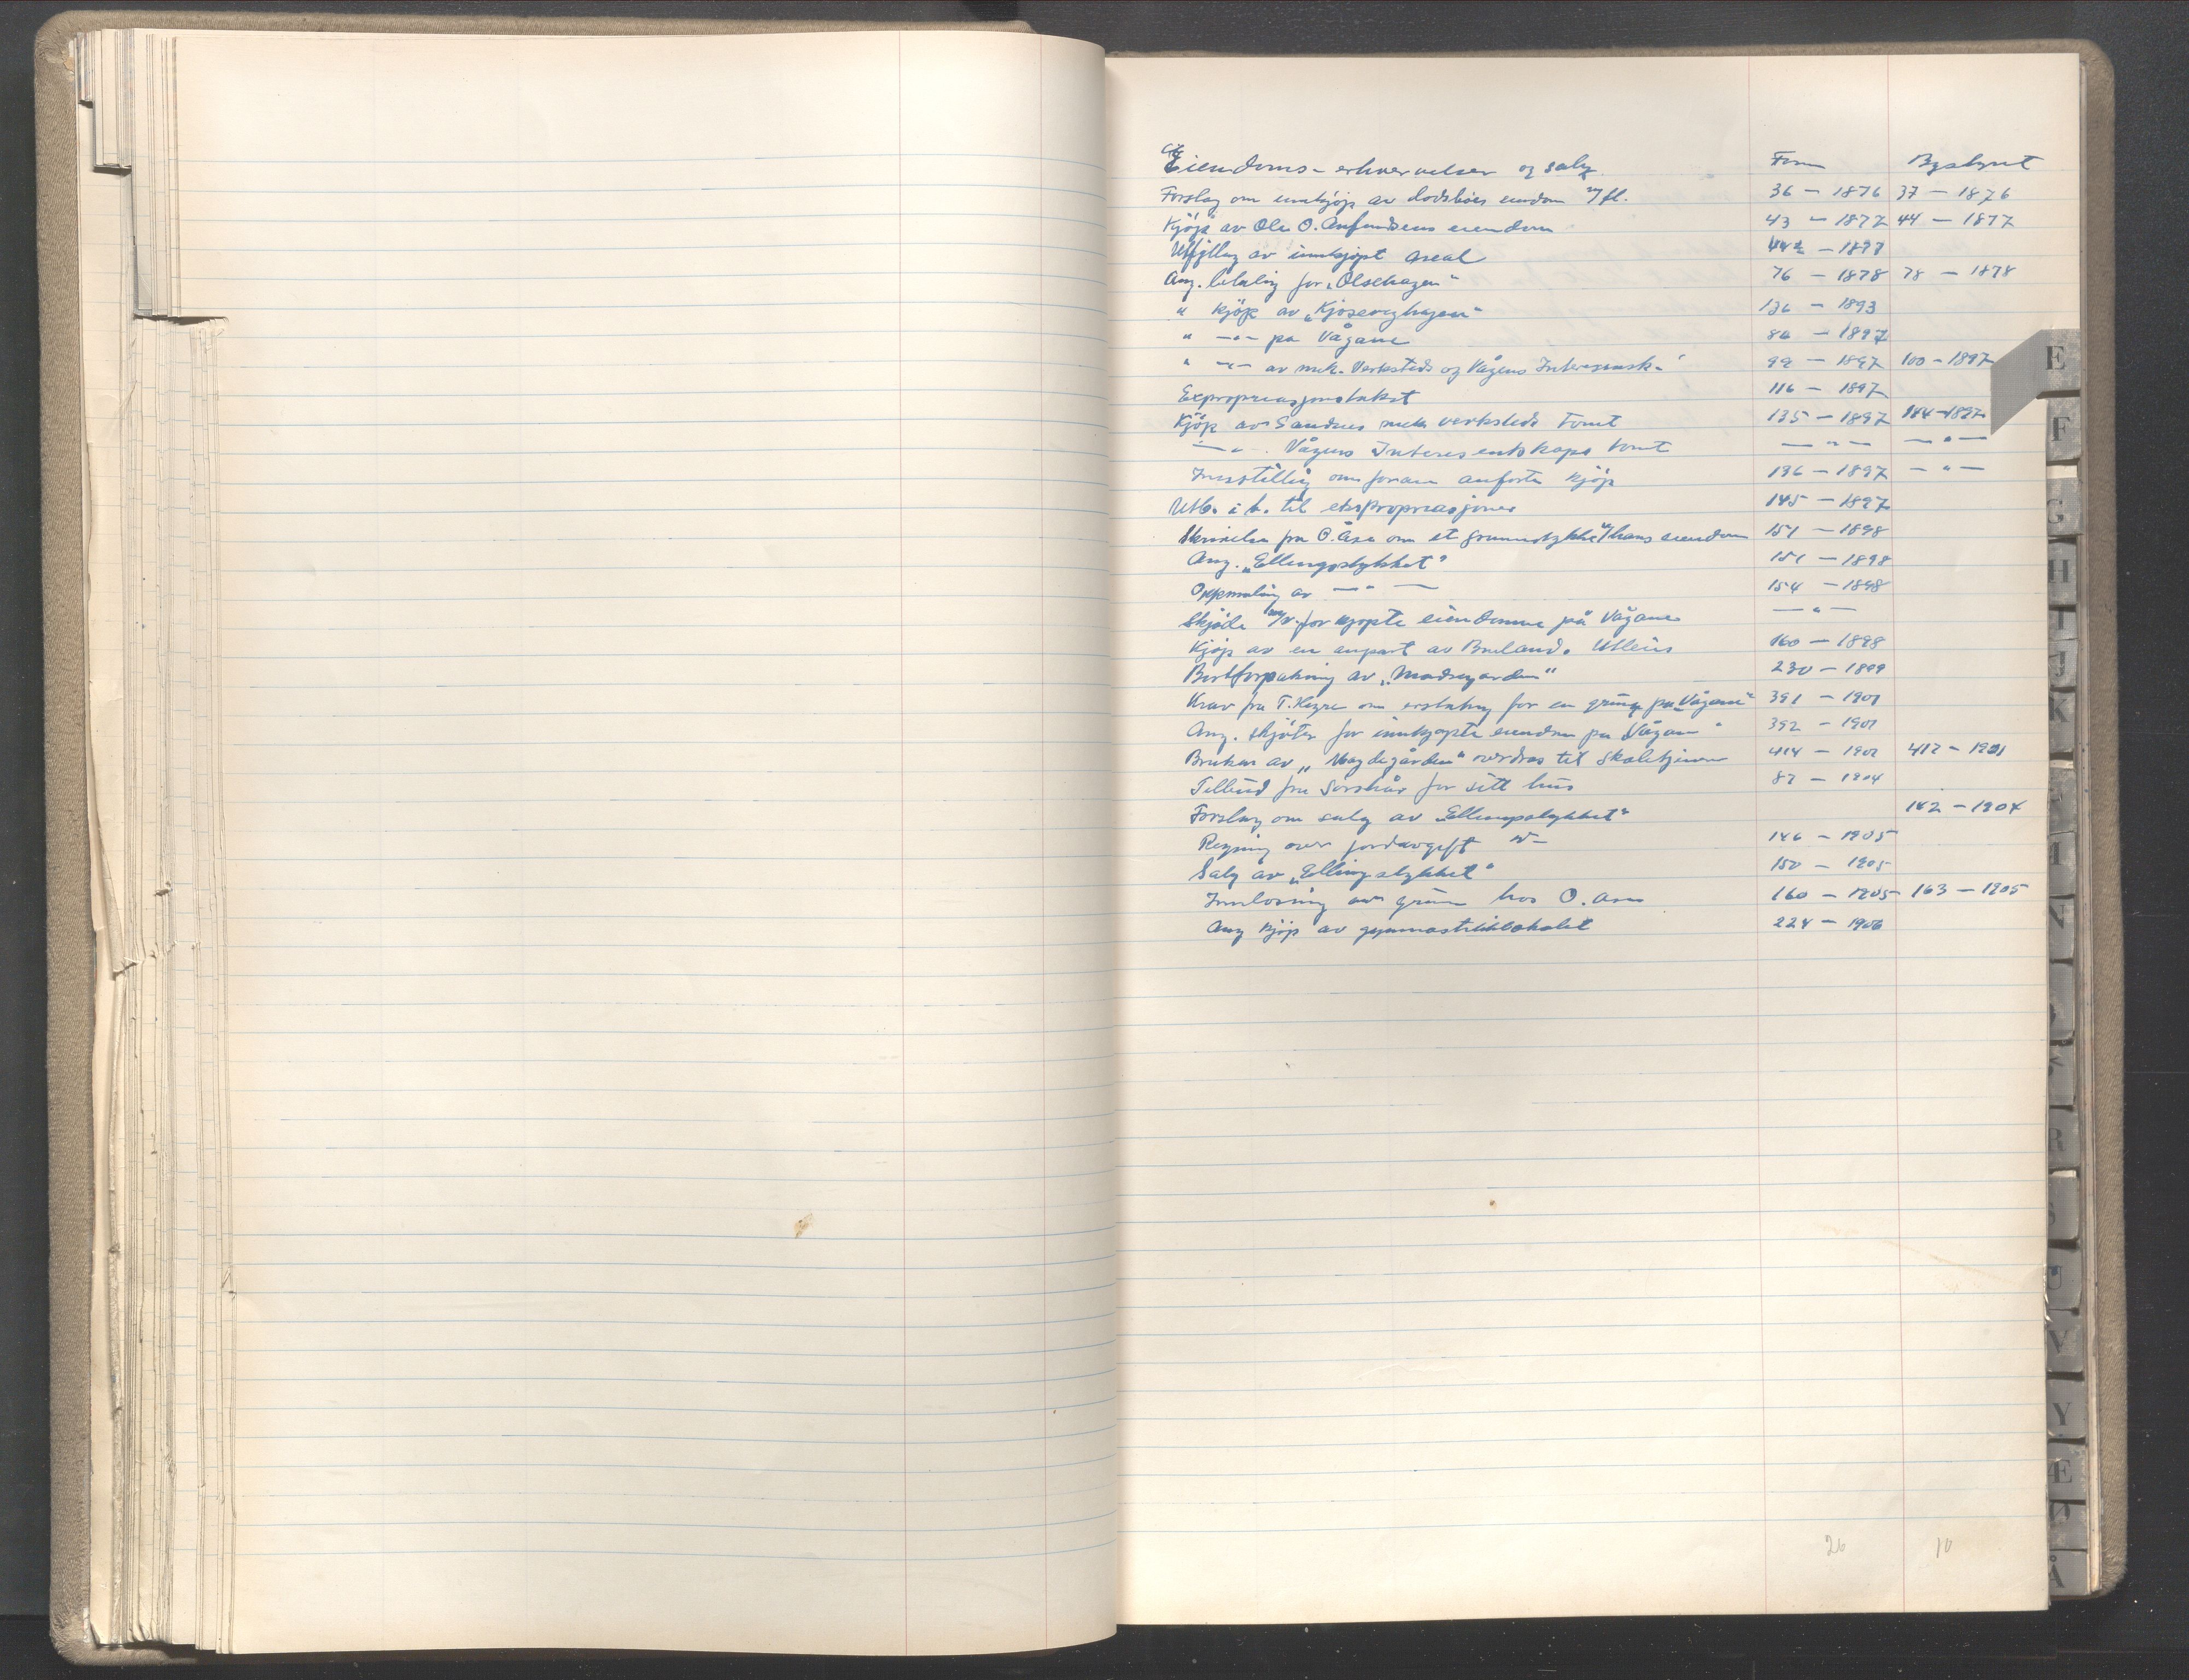 Eiendoms-erhvervelser og salg Form Bystyret
Forslag om innkjöp av dödsboes eiendom m/fl. 36 — 1876 37 — 1876
Kjöp av Ole O. Anfundsens eiendom 43 — 1877 44 — 1877
Utfylling av innkjöpt areal — 1877
Ang. betaling for „Olsehagen" 76 — 1878 78 — 1878
" Kjöp av „Kjosevighagen" 136 — 1893
" —"— på Vågane — 1897
" —"— av mek. Verksted og Vågens Interessentsk. 99 — 1897 100 — 1897
Expropriasjonstakst 116 — 1897
Kjöp av Sandnes mek verksteds Tomt 135 — 1897 184 — 1897
—"— . Vågens Interesentskaps tomt —"— —"—
Innstilling om foran anförte kjöp 196 — 1897 —"—
Utb. i b. til ekspropriasjoner 145 — 1897
Skrivelse fra O. Åse om et grunnstykke av hans eiendom 151 — 1898
Ang. „Ellingstykket" 151 — 1898
Oppmåling av —"— 154 — 1898
Skjöde for kjöpte eiendomme på Vågane —"—
Kjöp av en anpart av Bruland. Utleirs 160 — 1898
Bortforpakning av „Madsegarden" 230 — 1899
Krav fra T. Høyre om erstatning for en grunn på „Vågane" 391 — 1901
Ang. skjöter for innkjöpte eiendom på „Vågane" 392 — 1901
Bruken av „Magdegården" overdras til Skoletjener 414 — 1902 412 — 1901
Tilbud fra Sorskår for sitt hus 87 — 1904
Forslag om salg av „Ellingstykket" 142 — 1904
Regning over jordavgift 146 — 1905
Salg av „Ellingstykket" 150 — 1905
Innlösning av grunn hos O. Åse 160 — 1905 163 — 1905
Ang kjöp av gymnastikklokalet 224 — 1906
26 10
E
F
G
H
I
J
K
L
N
R
S
U
V
Y
Æ
Ø
Å